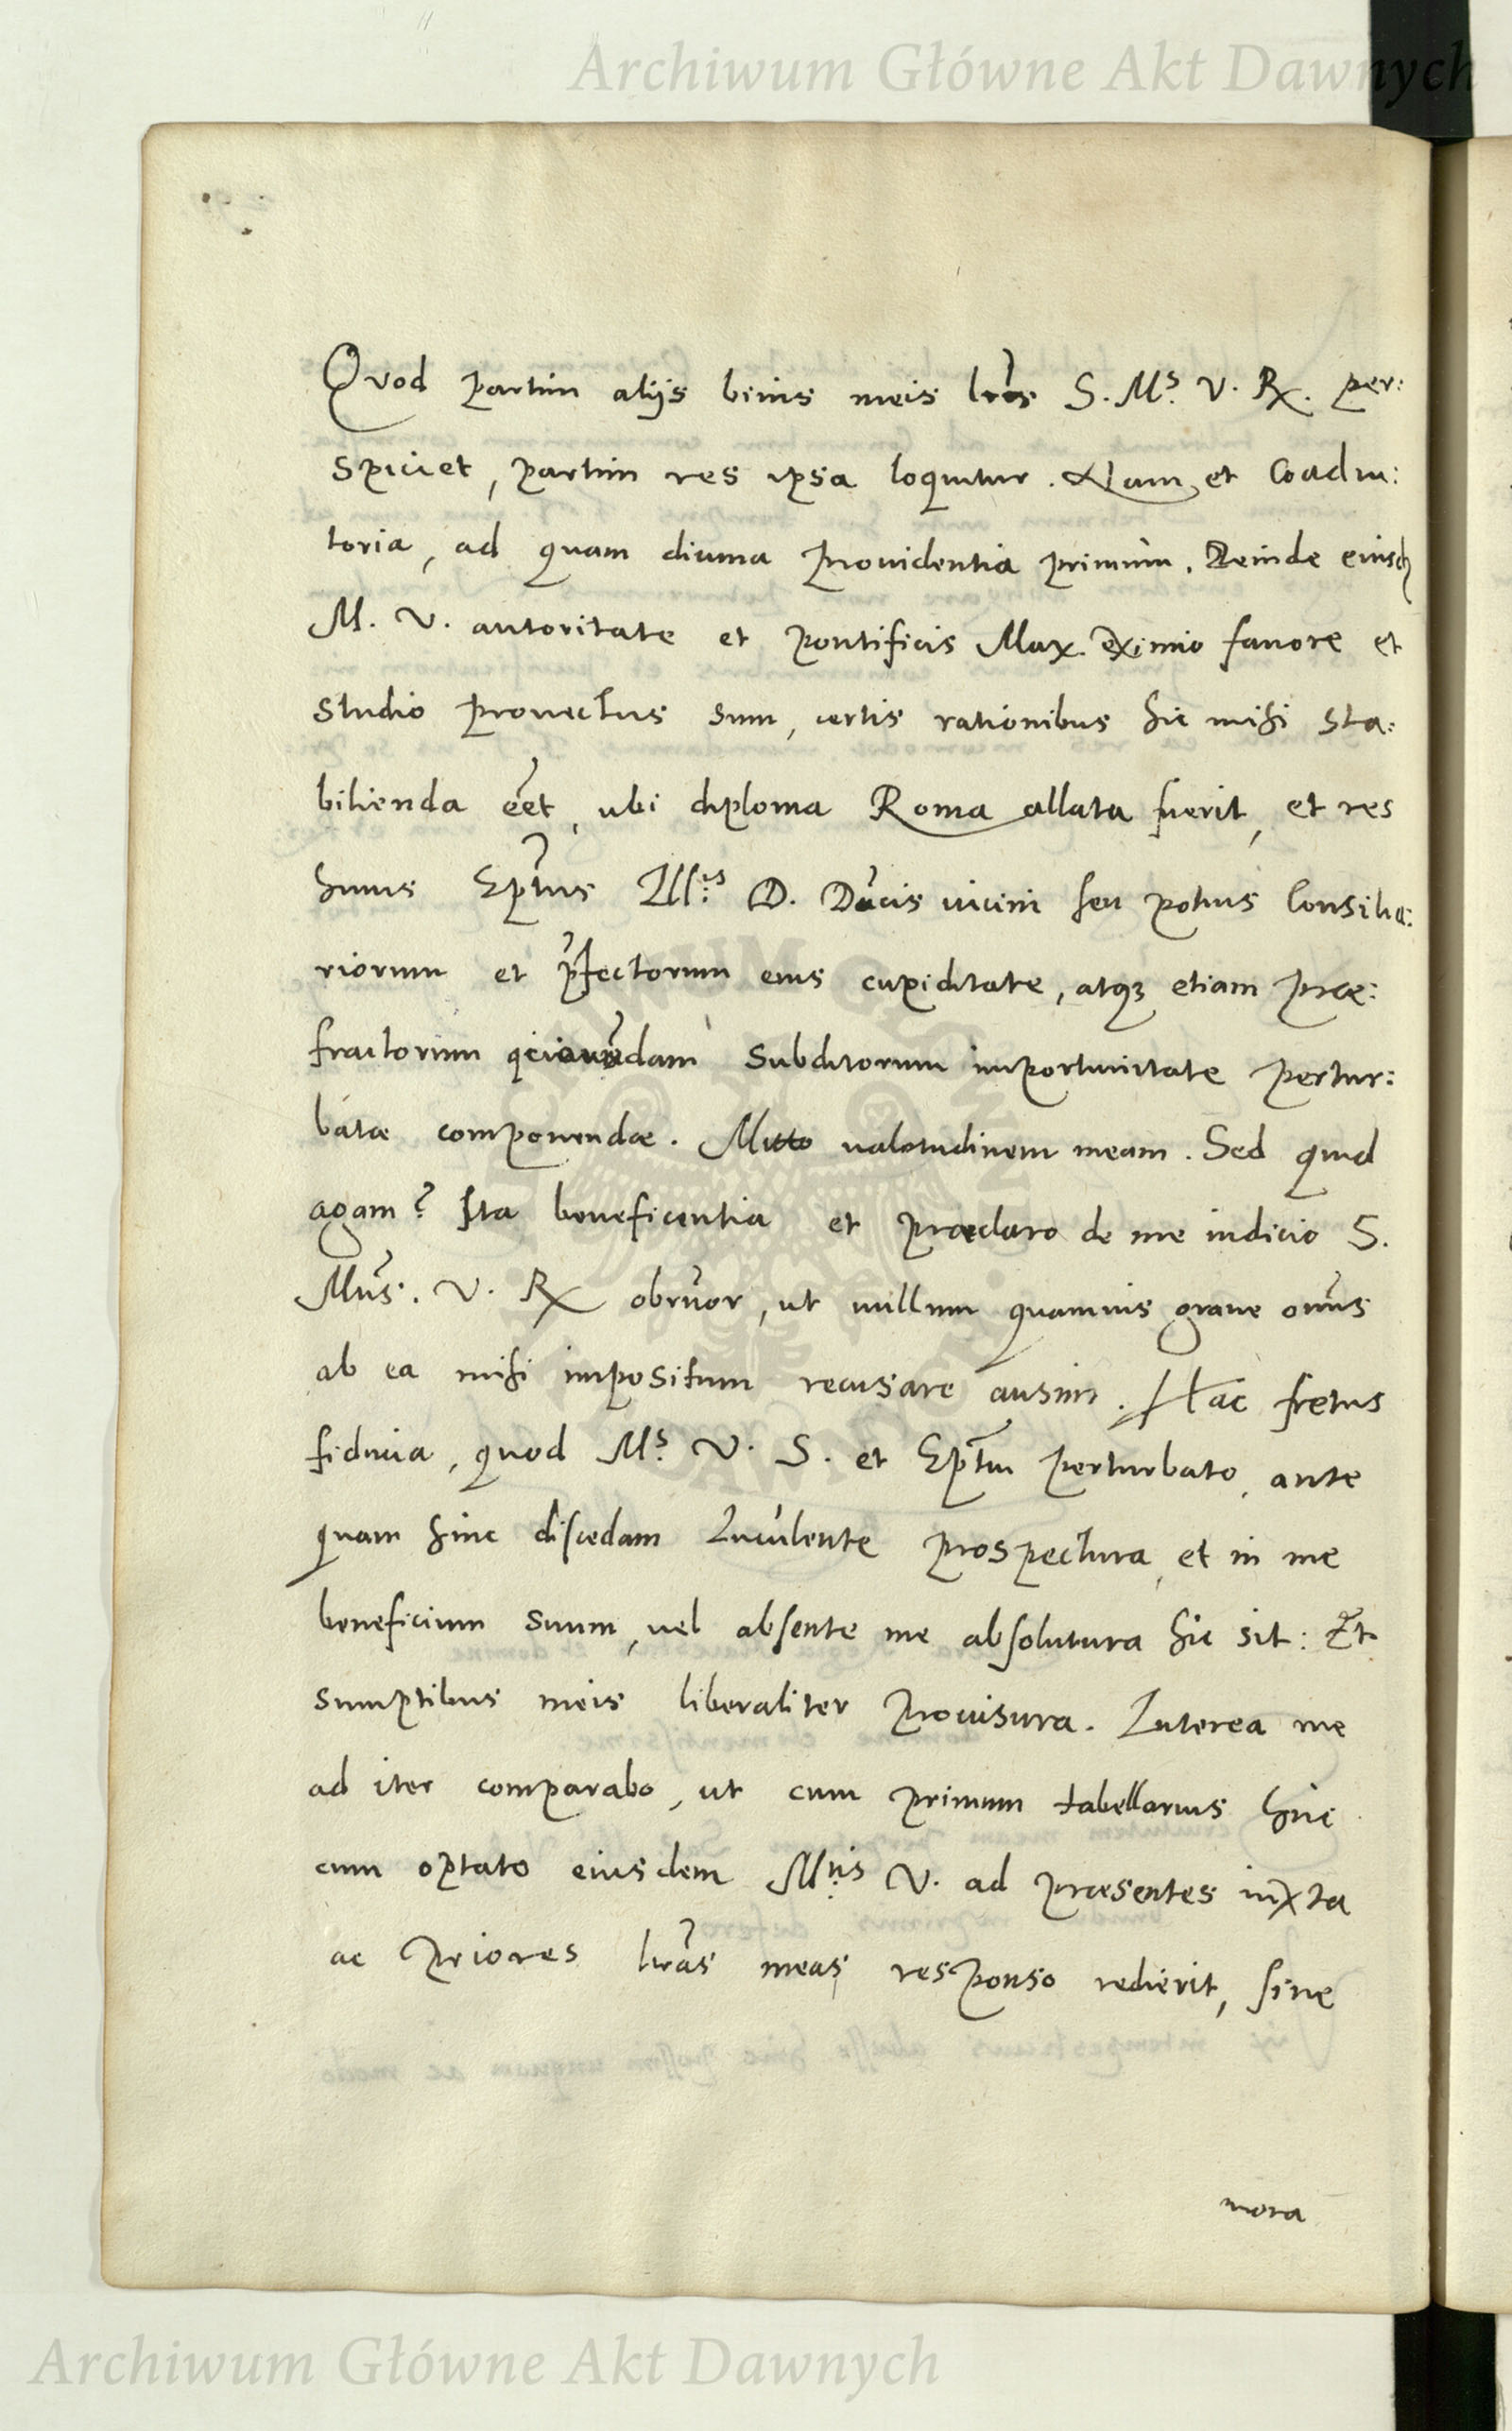 Archiwum Główne Akt Dawnych
Quod partim alijs binis meis lr̃is S. M.s V. R. per:
spiciet, partim res ipsa loquitur. Nam et Coadiu:
toria, ad quam diuina prouidentia primum. Deinde eiusd
M. V. autoritate et pontificis Max. eximio fauore et
studio prouectus sum, certis rationibus hic mihi sta:
bilienda eẽt, ubi diploma Roma allata fuerit, et res
huius Ep̃tus Ill.is D. Ducis uicini seu potius Consilia:
riorum et p̃fectorum eius cupiditate, atq3 etiam præ:
fractorum subditorum importunitate pertur:
batæ componendæ. Mitto ualetudinem meam. Sed quid
agam? Ita beneficentia et præclaro de me iudicio S.
Mtis. V. R obruor, ut nullum quamuis graue onus
ab ea mihi impositum recusare ausim. Hac fretus
fiducia, quod M.s V. S. et Ep̃tui perturbato, ante
quam hinc discedam luculente prospectura, et in me
beneficium suum, uel absente me absolutura hic sit: Et
sumptibus meis liberaliter prouisura. Interea me
ad iter comparabo, ut cum primum tabellarius huc
cum optato eiusdem M.tis V. ad præsentes iuxta
ac priores lr̃as meas responso redierit, sine
mora
Archiwum Główne Akt Dawnych